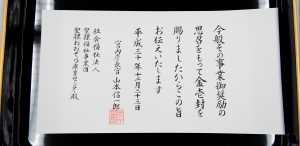 今般その事業御奨励の
思召をもって金壱封を
賜りましたからこの旨
お伝えいたします
平成三十年十二月二十三日
宮内庁長官 山本信一郎
社会福祉法人
聖隷福祉事業団
聖隷おおぞら療育センター殿